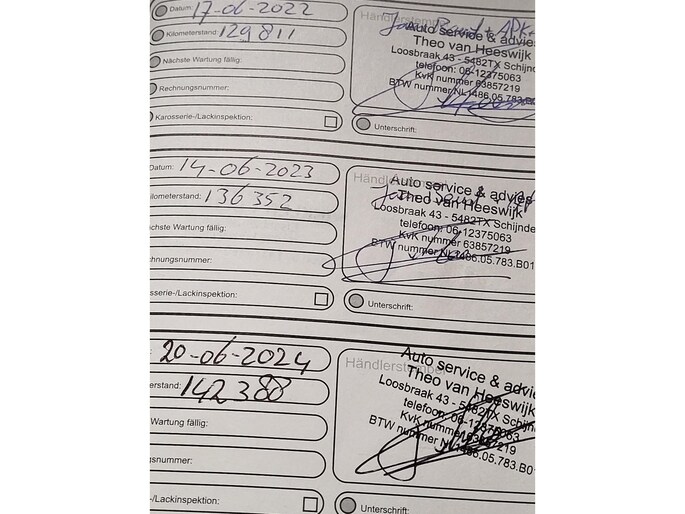 Datum: 17-06-2022
Kilometerstand: 129811
Nächste Wartung fällig:
Rechnungsnummer:
Karosserie-/Lackinspektion:
Händlerstempel
Auto service & advies
Theo van Heeswijk
Loosbraak 43 - 5482TX Schijnde
telefoon: 06-12375063
KvK nummer 63857219
BTW nummer NL1486.05.783.B01
Unterschrift:
Datum: 14-06-2023
ilometerstand: 136352
ächste Wartung fällig:
chnungsnummer:
osserie-/Lackinspektion:
Händler
Auto service & advies
Theo van Heeswijk
Loosbraak 43 - 5482TX Schijnde
telefoon: 06-12375063
KvK nummer 63857219
BTW nummer NL1486.05.783.B01
Unterschrift:
20-06-2024
erstand: 142388
Wartung fällig:
gsnummer:
-/Lackinspektion:
Händlerstempel
Auto service & advie
Theo van Heeswijk
Loosbraak 43 - 5482TX Schijnd
telefoon: 06-12375063
KvK nummer 63857219
BTW nummer NL1486.05.783.B01
Unterschrift: